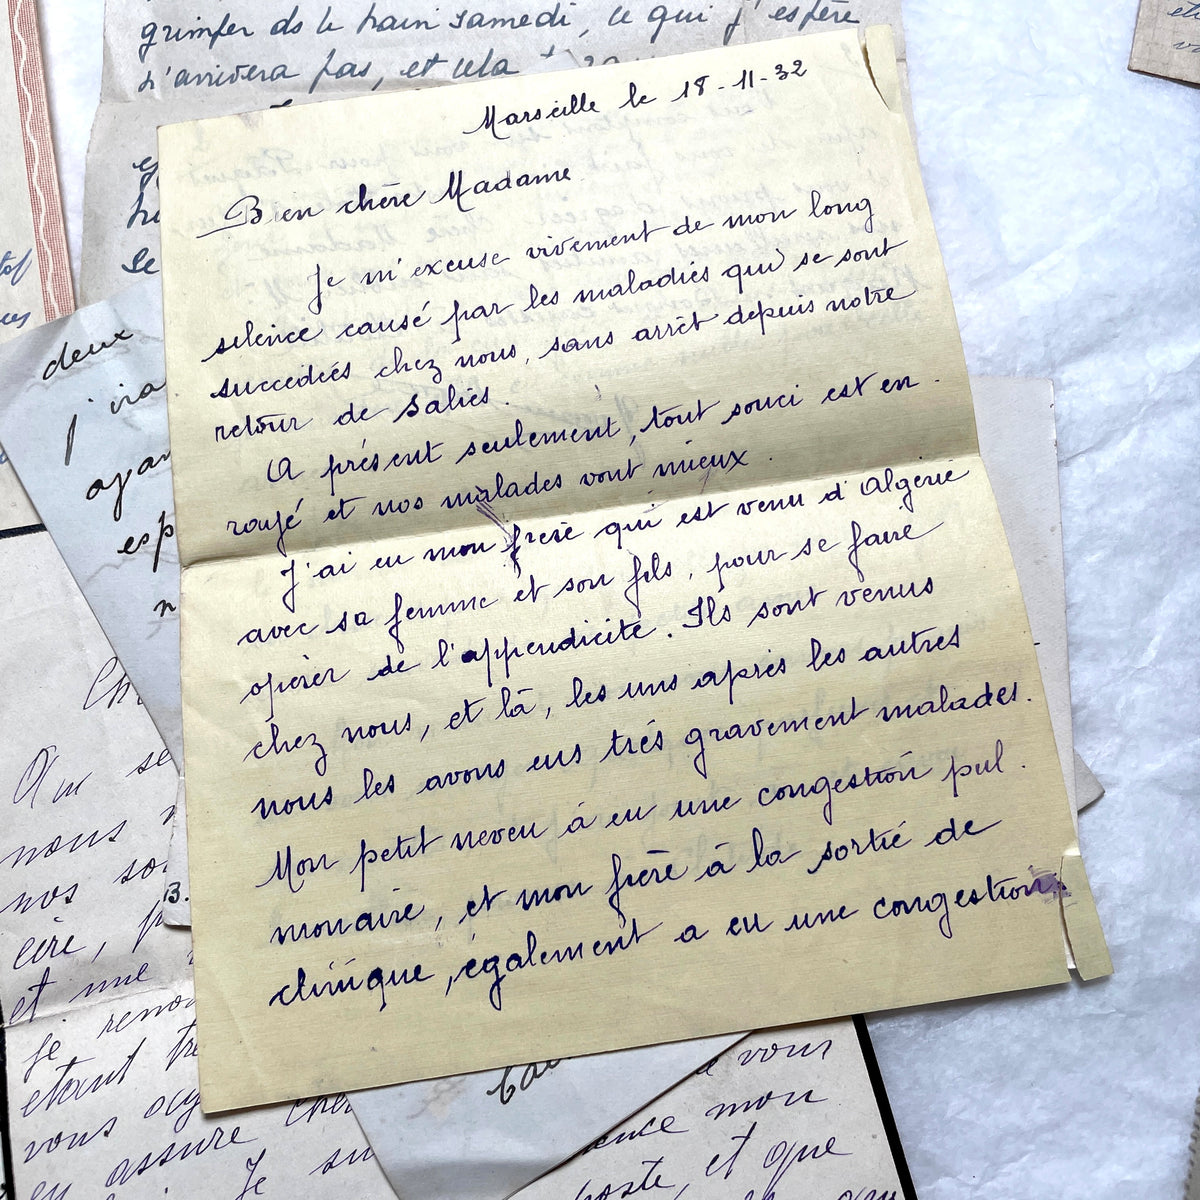 grimper ds le train samedi, ce qui j'espère
n'arrivera pas, et cela
Marseille le 18-11-32
Bien chère Madame
Je m'excuse vivement de mon long
silence causé par les maladies qui se sont
succédées chez nous, sans arrêt depuis notre
retour de Salies.
A présent seulement, tout souci est en-
rayé et nos malades vont mieux.
J'ai eu mon frère qui est venu d'Algérie
avec sa femme et son fils, pour se faire
opérer de l'appendicite. Ils sont venus
chez nous, et là, les uns après les autres
nous les avons eus trés gravement malades.
Mon petit neveu à eu une congestion pul-
monaire, et mon frère à la sortie de
clinique, également a eu une congestion
deux
j'irai
ayan
esp
n
Ch
B.
nous
nos
et une
je renou
étant tr
vous
en assure
Je su
vous
mon
et que